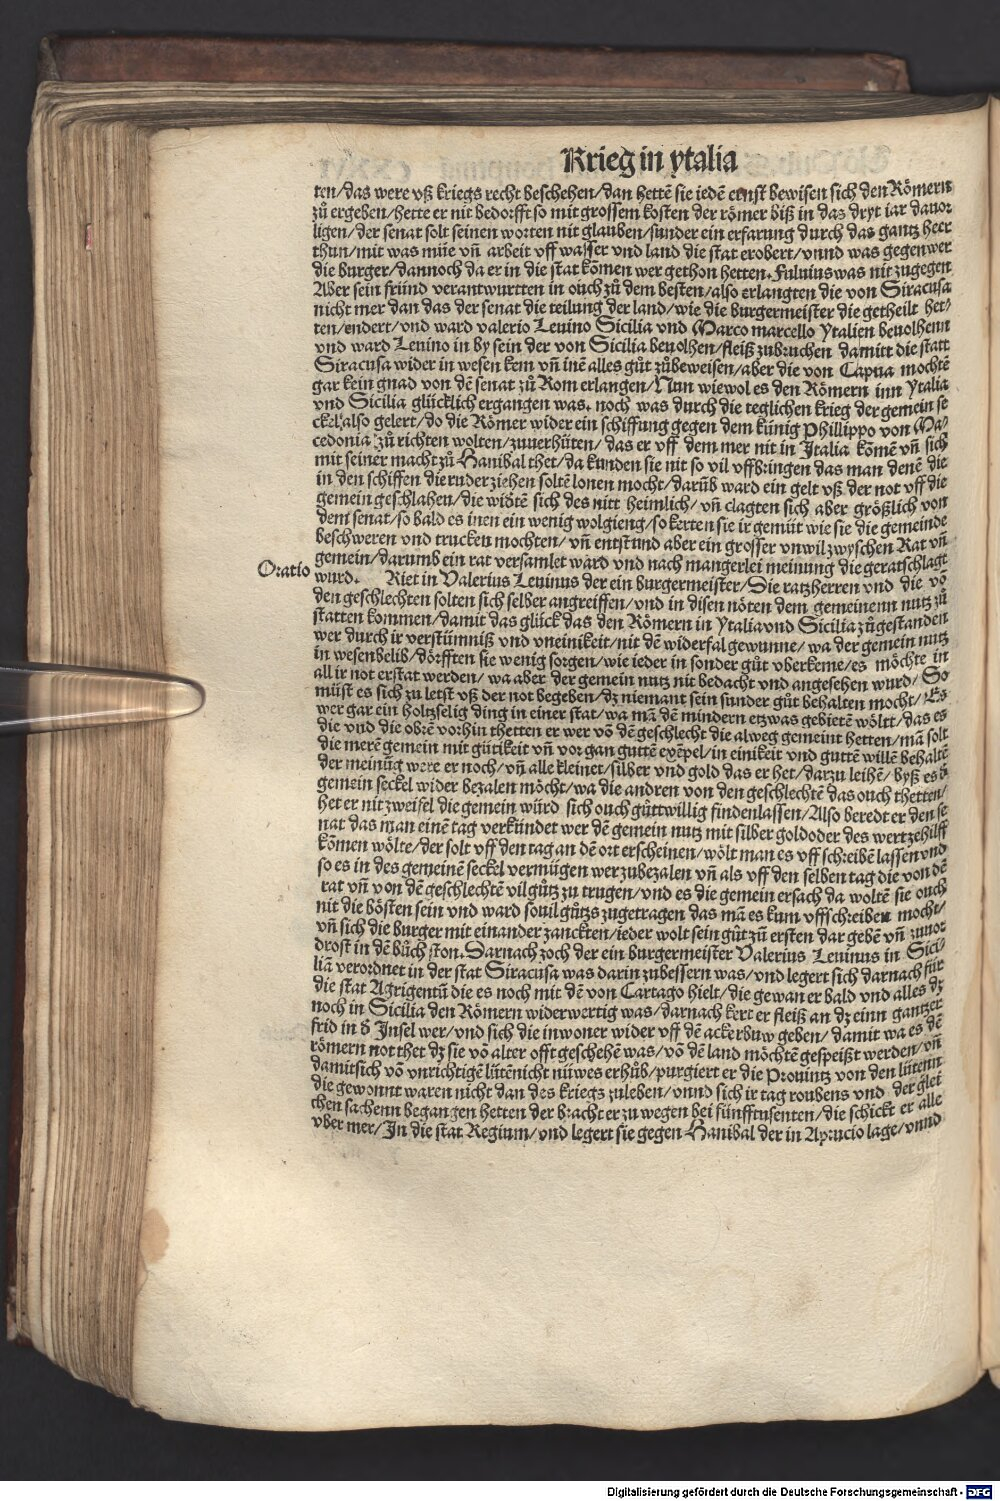 Krieg in ytalia
ten/das were vß kriegs recht beschehen/dan hettē sie iedē ernst bewisen sich den Römern
zů ergeben/hette er nit bedorfft so mit grossem kosten der römer biß in das dryt iar dauor
ligen/der senat solt seinen worten nit glauben/sunder ein erfarung durch das gantz heer
thun/mit was müe vñ arbeit vff wasser vnd land die stat erobert/vnnd was gegenwer
die burger/dannoch da er in die stat kōmen wer gethon hetten. Fuluius was nit zugegen
Aber sein fründ verantwurtten in ouch zů dem besten/also erlangten die von Siracusa
nicht mer dan das der senat die teilung der land/wie die burgermeister die getheilt het-
ten/endert/vnd ward valerio Leuino Sicilia vnd Marco marcello Ytalien beuolhenn
vnd ward Leuino in by sein der von Sicilia beuolhen/fleiß zubruchen damitt die statt
Siracusa wider in wesen kem vñ inē alles gůt zůbeweisen/aber die von Capua mochtē
gar kein gnad von dē senat zů Rom erlangen/Nun wiewol es den Römern inn Ytalia
vnd Sicilia glücklich ergangen was. noch was durch die teglichen krieg der gemein se
ckel also gelert/do die Römer wider ein schiffung gegen dem künig Phillippo von Ma-
cedonia zů richten wolten/zuuerhüten/das er vff dem mer nit in Italia kōmē vñ sich
mit seiner macht zů Hanibal thet/da kunden sie nit so vil vffbringen das man denē die
in den schiffen die ruder ziehen soltē lonen mocht/darūb ward ein gelt vß der not vff die
gemein geschlahen/die widtē sich des nitt heimlich/vñ clagten sich aber größlich von
dem senat/so bald es inen ein wenig wolgieng/so kerten sie ir gemüt wie sie die gemeinde
beschweren vnd trucken mochten/vñ entstund aber ein grosser vnwil zwyschen Rat vñ
gemein/darumb ein rat versamlet ward vnd nach mangerlei meinung die geratschlagt
Oratio wurd. Riet in Valerius Leuinus der ein burgermeister/Die ratzherren vnd die vō
den geschlechten solten sich selber angreiffen/vnd in disen nöten dem gemeinenn nutz zů
statten kommen/damit das glück das den Römern in Ytalia vnd Sicilia zůgestanden
wer durch ir verstümniß vnd vneinikeit/nit dē widerfal gewunne/wa der gemein nutz
in wesen belib/dörfften sie wenig sorgen/wie ieder in sonder gůt vberkeme/es möchte in
all ir not erstat werden/wa aber der gemein nutz nit bedacht vnd angesehen wurd/So
müst es sich zu letst vß der not begeben/dz niemant sein sunder gůt behalten mocht/Es
wer gar ein holtzselig ding in einer stat/wa mā dē mindern etzwas gebietē wöltt/das es
die vnd die obrē vorhin thetten er wer vō dē geschlecht die alweg gemeint hetten/mā solt
die merē gemein mit gütikeit vñ vorgan guttē exēpel/in einikeit vnd guttē willē behaltē
der meinūg were er noch/vñ alle kleinet/silber vnd gold das er het/darzu leihē/byß es d̄
gemein seckel wider bezalen möcht/wa die andren von den geschlechtē das ouch thetten/
het er nit zweifel die gemein würd sich ouch gůttwillig finden lassen/Also beredt er den se
nat das man einē tag verkündet wer dē gemein nutz mit silber gold oder des wert zehilff
kōmen wölte/der solt vff den tag an dē ort erscheinen/wölt man es vff schreibē lassen vnd
so es in des gemeinē seckel vermügen wer zubezalen vñ als vff den selben tag die von dē
rat vñ von dē geschlechtē vil gůtz zu trugen/vnd es die gemein ersach da woltē sie ouch
nit die bösten sein vnd ward souil gůtzs zugetragen das mā es kum vffschreiben mocht/
vñ sich die burger mit einander zanckten/ieder wolt sein gůt zů ersten dar gebē vñ zuuor
drost in dē bůch ston. Darnach zoch der ein burgermeister Valerius Leuinus in Sici-
liā verordnet in der stat Siracusa was darin zubessern was/vnd legert sich darnach für
die stat Agrigentū die es noch mit dē von Cartago hielt/die gewan er bald vnd alles dz
noch in Sicilia den Römern widerwertig was/darnach kert er fleiß an dz einn gantzer
frid in d̄ Insel wer/vnd sich die inwoner wider vff dē ackerbuw geben/damit wa es dē
römern not thet dz sie vō alter offt geschehē was/vō dē land möchtē gespeißt werden/vñ
damit sich vō vnrichtigē lütē nicht nüwes erhüb/purgiert er die Prouintz von den lütenn
die gewonnt waren nicht dan des kriegs zuleben/vnnd sich ir tag roubens vnd der glei
chen sachenn begangen hetten der bracht er zu wegen bei fünfftusenten/die schickt er alle
vber mer/In die stat Regium/vnd legert sie gegen Hanibal der in Aprucio lage/vnnd
Digitalisierung gefördert durch die Deutsche Forschungsgemeinschaft - DFG